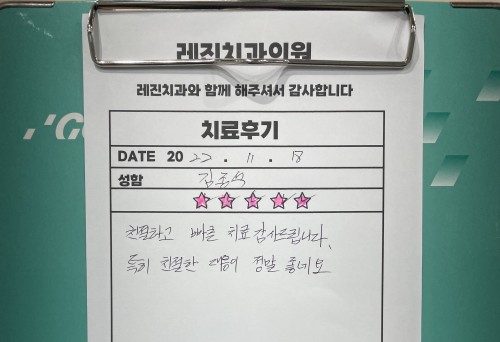 레진치과의원
레진치과와 함께 해주셔서 감사합니다
치료후기
DATE 20 22 . 11 . 18
성함 김
친절하고 빠른 치료 감사드립니다.
특히 친절한 대응이 정말 좋네요